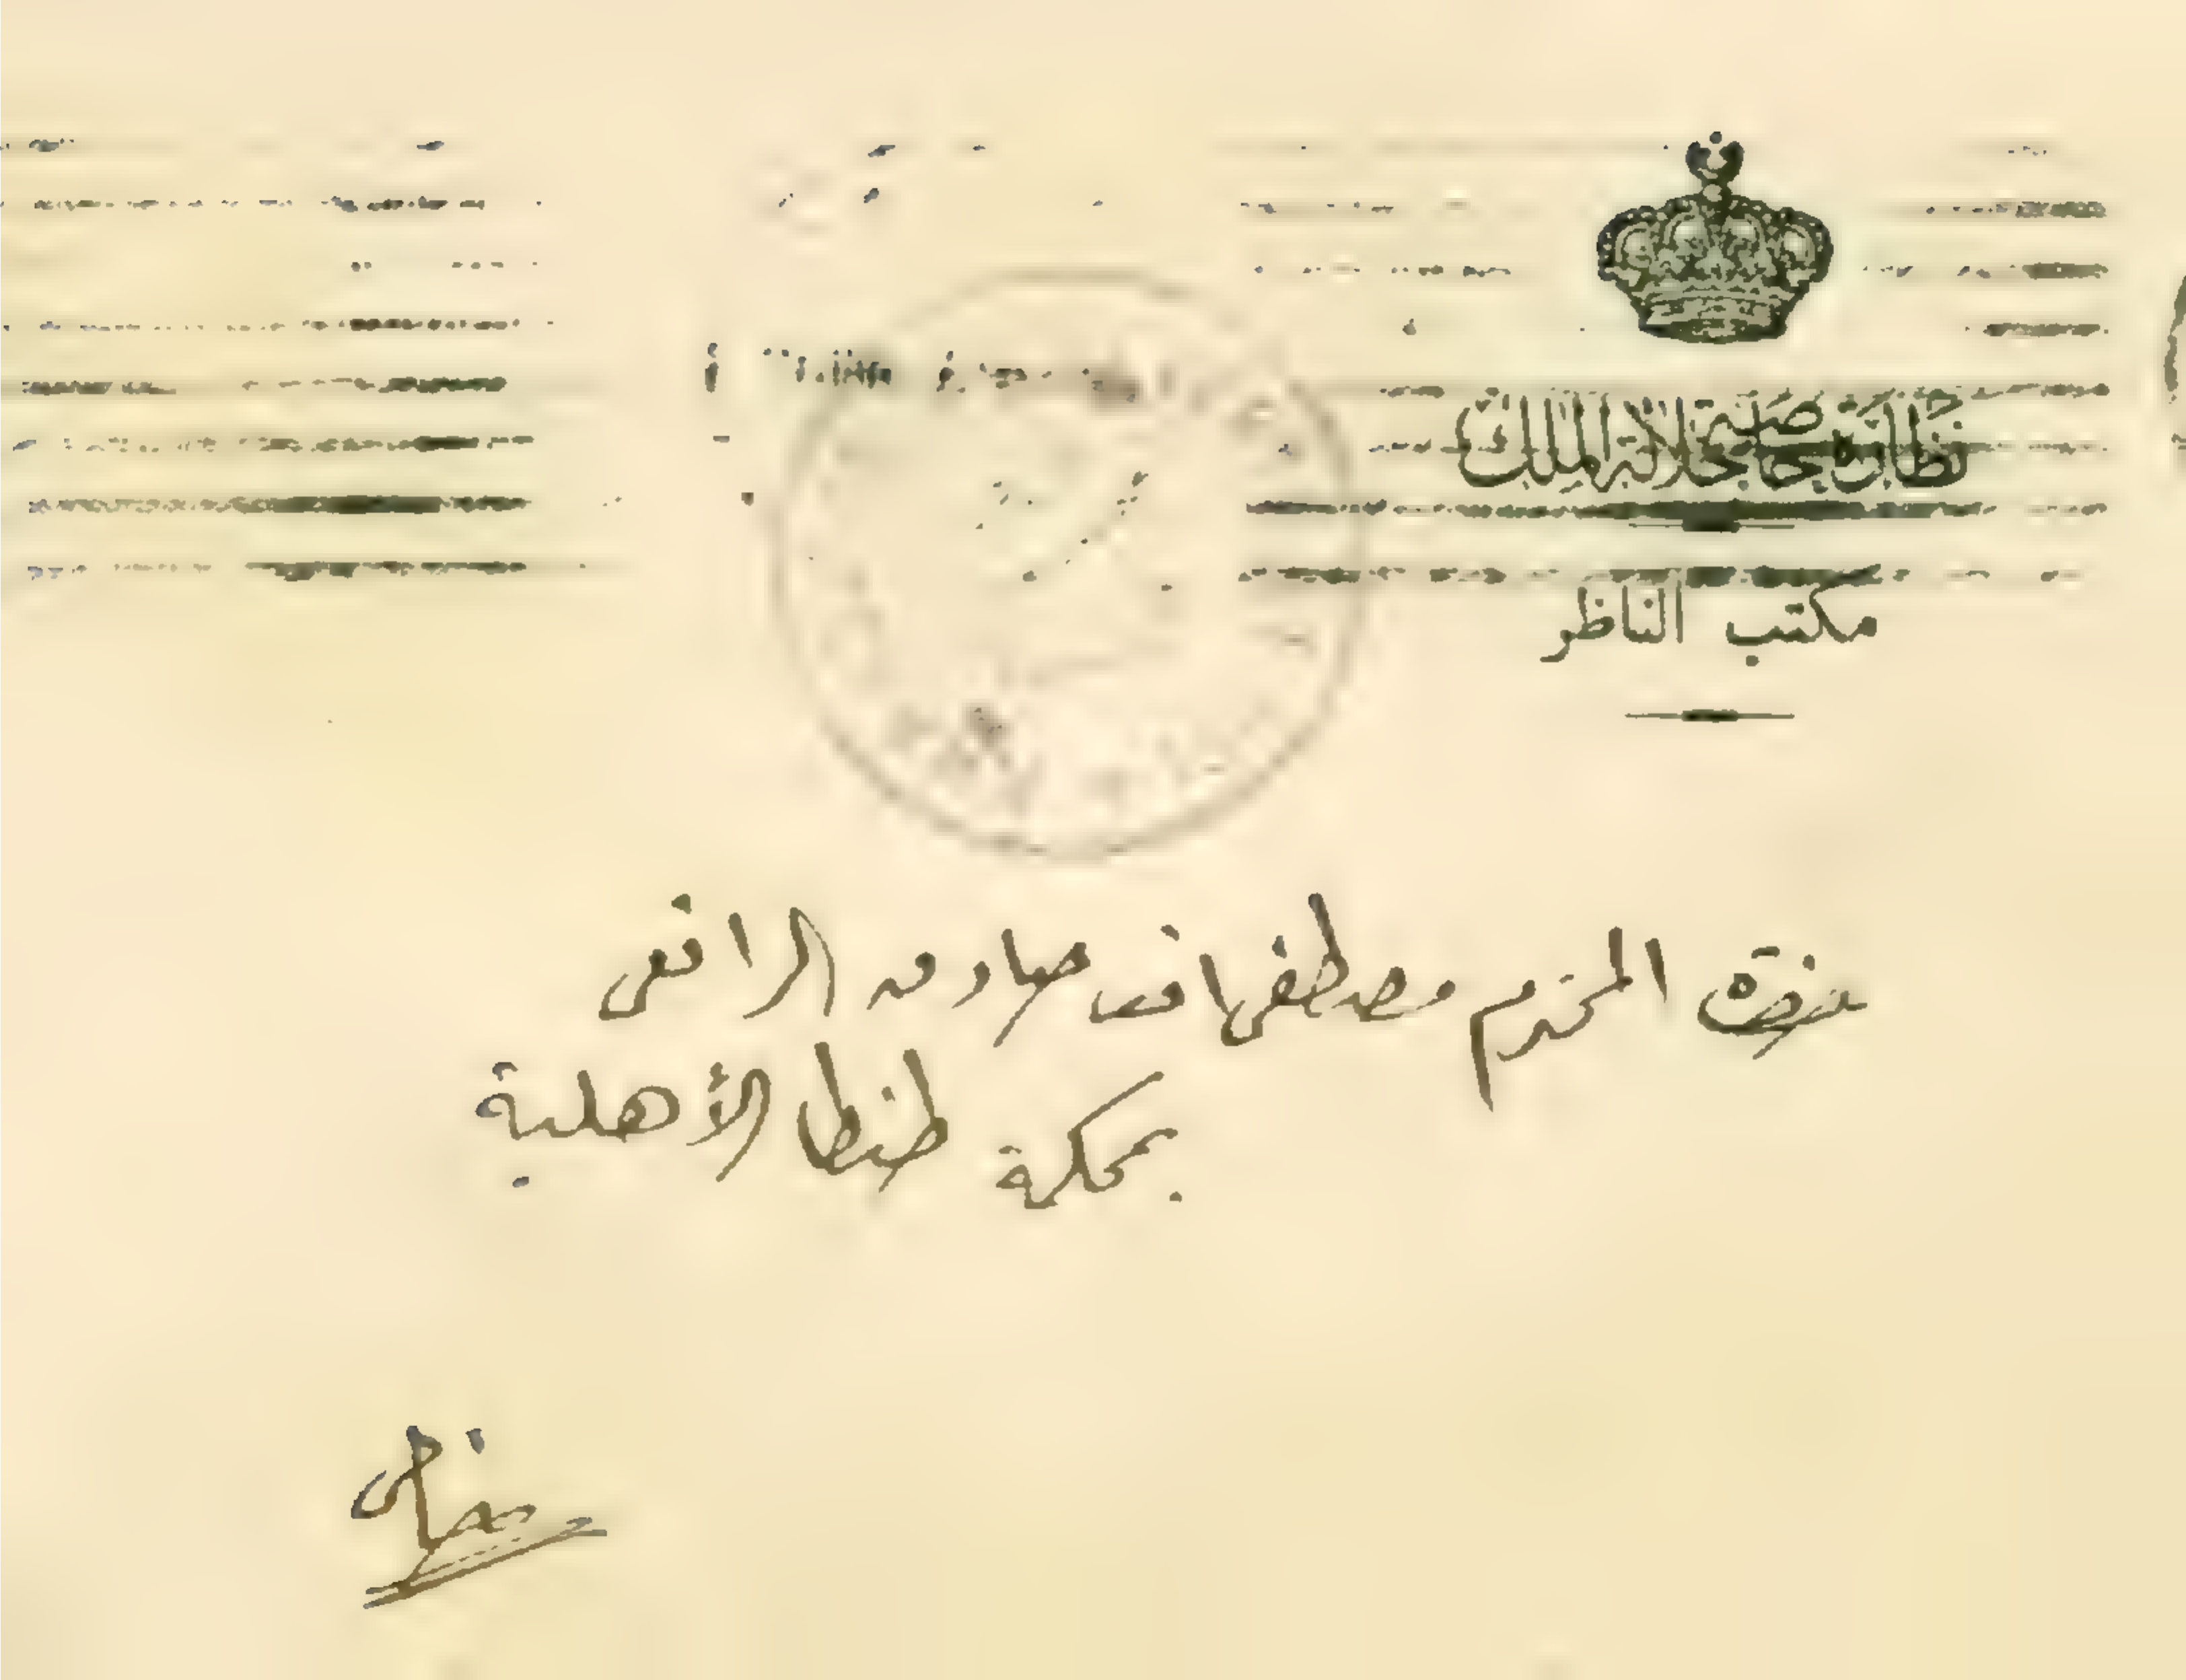 نظارة خاصة جلالة الملك
مكتب الناظر
حضرة المحترم مصطفى اف صادق الرافعى
بمحكمة طنطا الأهلية